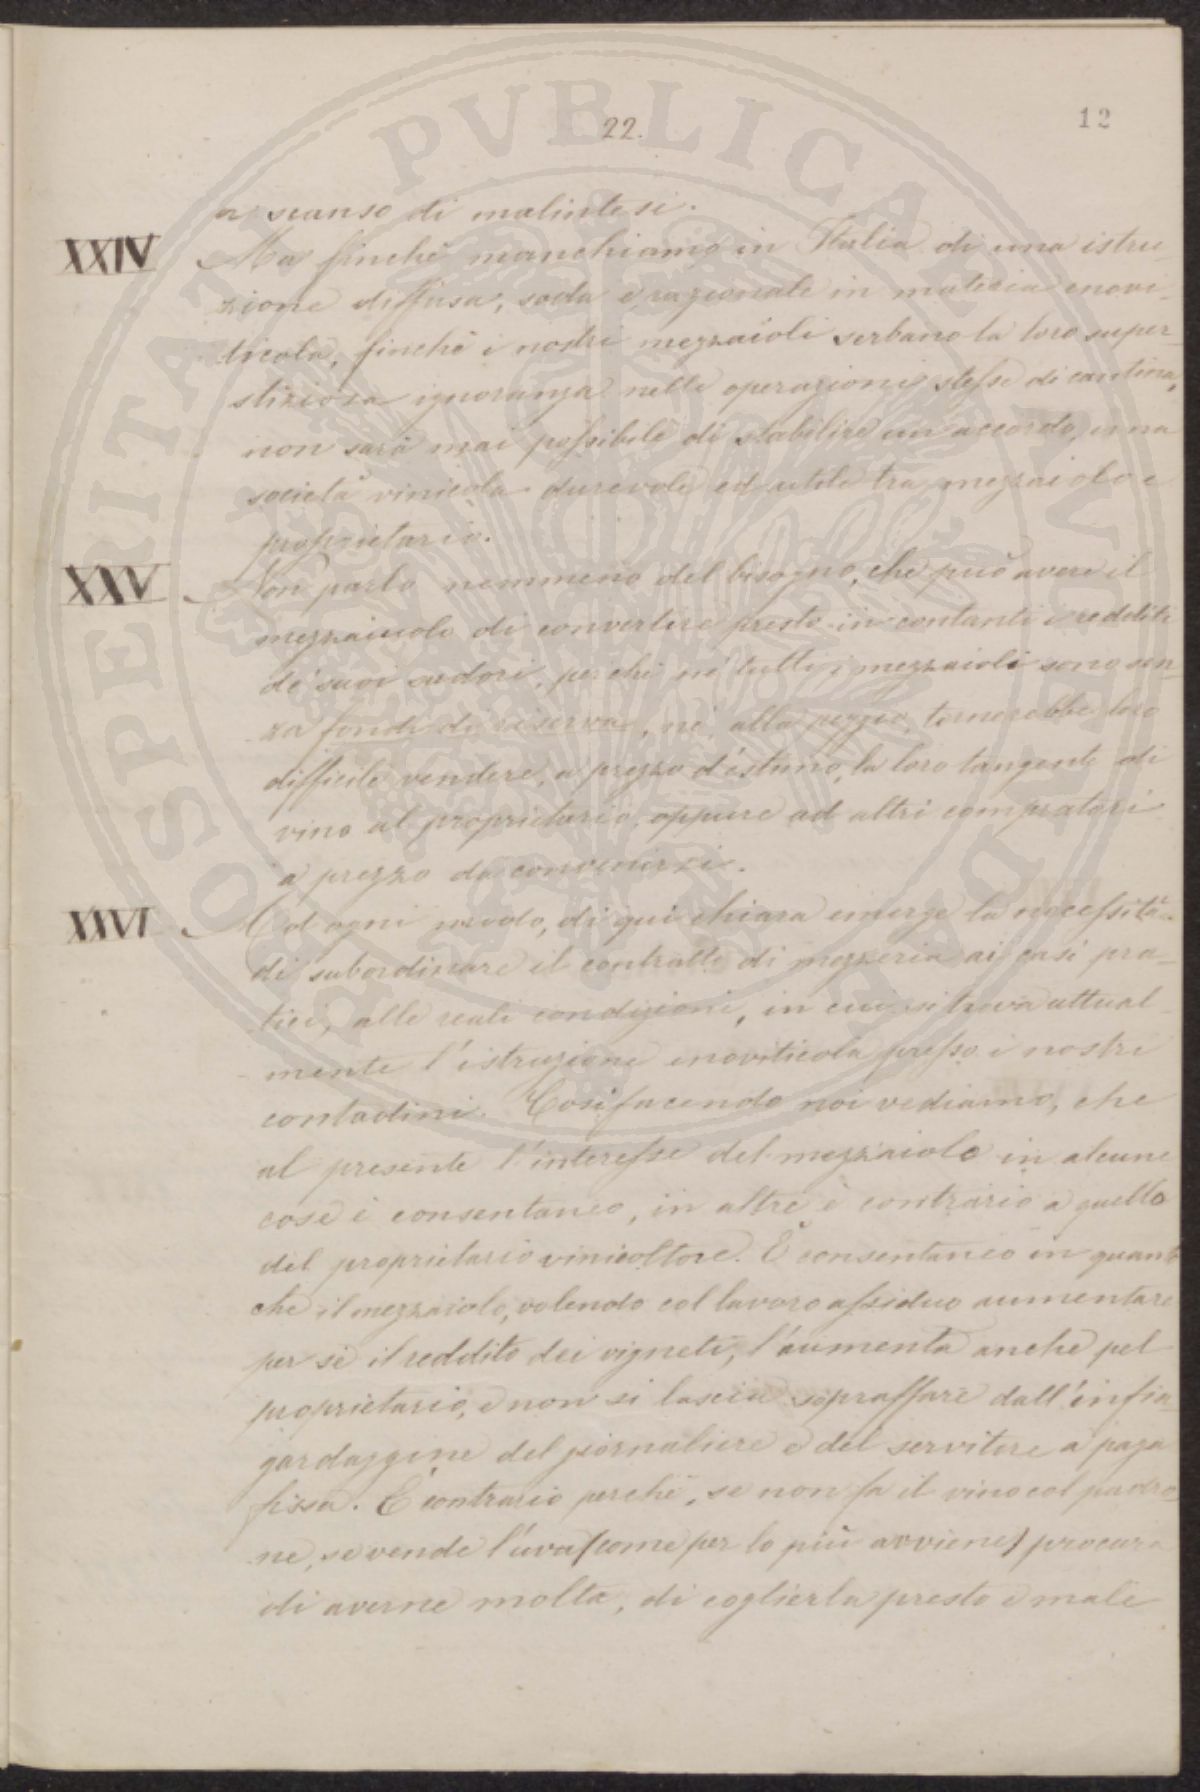 22.
12
a scanso di malintesi.
XXIV Ma finchè manchiamo in Italia di una istru-
zione diffusa, soda e razionale in materia enovi-
ticola, finchè i nostri mezzaioli serbano la loro super-
stiziosa ignoranza nelle operazioni stesse di cantina,
non sarà mai possibile di stabilire un accordo, una
società vinicola durevole ed utile tra mezzaiolo e
proprietario.
XXV Non parlo nemmeno del bisogno, che può avere il
mezzaiuolo di convertire presto in contanti i redditi
de' suoi sudori, perchè nè tutti i mezzaioli sono sen-
za fondi di riserva, nè, alla peggio, tornerebbe loro
difficile vendere, a prezzo d'estimo, la loro tangente di
vino al proprietario, oppure ad altri compratori
a prezzo da convenirsi.
XXVI Ad ogni modo, di qui chiara emerge la necessità
di subordinare il contratto di mezzeria ai casi pra-
tici, alle reali condizioni, in cui si trova attual-
mente l'istruzione enoviticola presso i nostri
contadini. Così facendo noi vediamo, che
al presente l'interesse del mezzaiolo in alcune
cose è consentaneo, in altre è contrario a quello
del proprietario vinicoltore. È consentaneo in quanto
che il mezzaiolo, volendo col lavoro assiduo aumentare
per sè il reddito dei vigneti, l'aumenta anche pel
proprietario, e non si lascia sopraffare dall'infin-
gardaggine del giornaliere e del servitore a paga
fissa. È contrario perchè, se non fa il vino col padro-
ne, se vende l'uva (come per lo più avviene) procura
di averne molta, di coglierla presto e male
PROSPERITATI PVBLICAE AVGENDAE